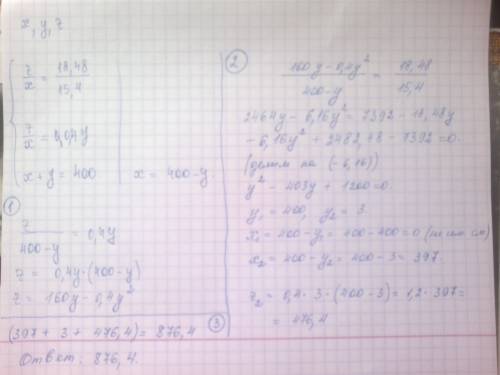 x, y, z
z/x = 18,48/15,4
z/x = 0,04y
x + y = 400 | x = 400 - y
①
z/(400-y) = 0,4y
z = 0,4y·(400-y)
z = 160y - 0,4y²
②
(160y - 0,4y²)/(400-y) = 18,48/15,4
2464y - 6,16y² = 7392 - 18,48y
- 6,16y² + 2482,48 - 7392 = 0.
(делим на (-6,16))
y² - 403y + 1200 = 0.
y₁ = 400, y₂ = 3.
x₁ = 400 - y₁ = 400 - 400 = 0 (не им. см)
x₂ = 400 - y₂ = 400 - 3 = 397.
z₂ = 0,4·3·(400-3) = 1,2·397 =
= 476,4
③
(397 + 3 + 476,4) = 876,4
Ответ: 876,4.